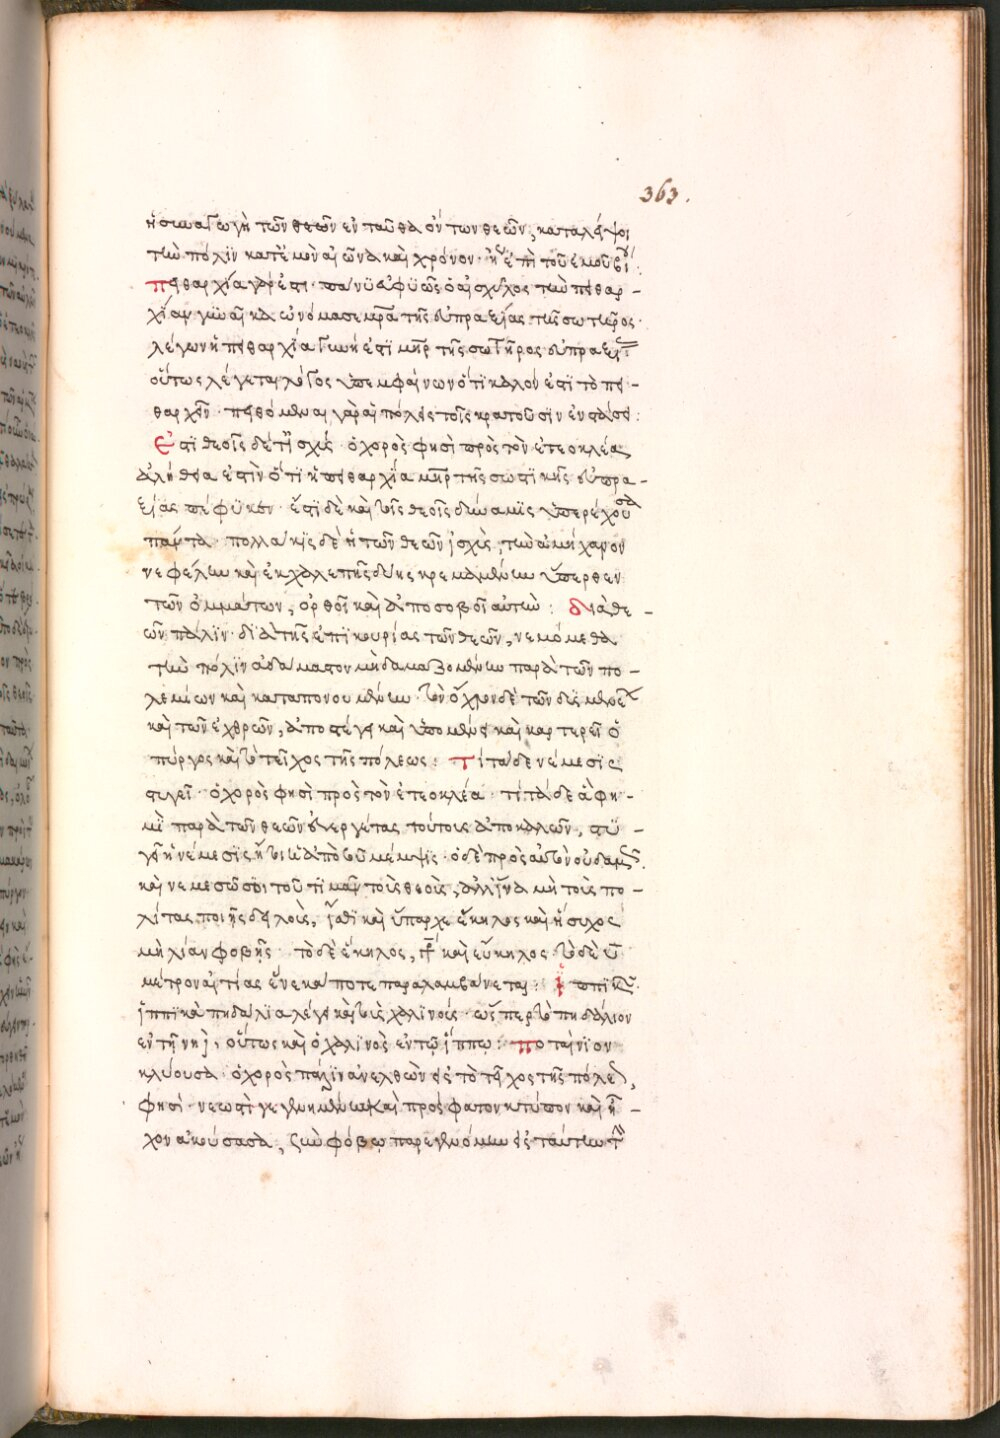 363.
ἡ συναγωγὴ τῶν θεῶν ἐνταῦθα ὄντων θεῶν, καταλείψοι
τὴν πόλιν κατ' ἐμὸν αἰῶνα καὶ χρόνον· ἢ ἐπὶ τοῦ ἐμοῦ βίου:
πειθαρχία γάρ ἐστι· πάνυ εὐφυῶς ὁ αἰσχύλος τὴν πειθαρ-
χίαν γυναῖκα ὠνόμασε μρα τῆς εὐπραξίας τῆς σωτῆρος·
λέγων ἡ πειθαρχία γυνή ἐστι μηρ τῆς σωτῆρος εὐπραξίας:
οὕτως λέγεται λόγος ὑπεμφαίνων ὅτι καλόν ἐστι τὸ πει-
θαρχεῖν· πειθόμεναι γὰρ αἱ πόλεις τοῖς κρατοῦσιν
ἐστι θεοῖς δέ τι ἰσχύς· ὁ χορὸς φησὶ πρὸς τὸν ἐτεοκλέα,
ἀλήθεια ἐστὶν ὅτι ἡ πειθαρχία μηρ τῆς σωστικῆς εὐπρα-
ξίας πέφυκεν· ἔστι δὲ καὶ τοῖς θεοῖς δύναμις ὑπερέχουσα
πάντα· πολλάκις δὲ ἡ τῶν θεῶν ἰσχὺς, τὴν ἀμήχανον
νεφέλην καὶ ἐκ χαλεπῆς δύης κρεμαμένην ὕπερθεν
τῶν ὀμμάτων, ὀρθοῖ καὶ ἀποσοβοῖ αὐτὴν: διὰ θε-
ῶν πάλιν· διὰ τῆς ἐπικουρίας τῶν θεῶν, νεμόμεθα
τὴν πόλιν ἀδάμαστον μὴ δαμαζομένην παρὰ τῶν πο-
λεμίων καὶ καταπονουμένην· τὸν ὄχλον δὲ τῶν δυσμενῶν
καὶ τῶν ἐχθρῶν, ἀποστέγει καὶ ὑπομένει καὶ καρτερεῖ ὁ
πύργος καὶ τὸ τεῖχος τῆς πόλεως: τί τάδε νέμεσις
στυγεῖ· ὁ χορὸς φησὶ πρὸς τὸν ἐτεοκλέα· τί τάδε ἃ φη-
μὶ παρὰ τῶν θεῶν εὐεργέτας τούτοις ἀποκαλῶν, στυ-
γεῖ ἡ νέμεσις ἤτοι ἡ ἀπὸ τοῦ μέμψις· ὁ δὲ πρὸς αὐτὸν οὐδαμῶς.
καὶ νεμεσῶ σοι τοῦ τιμᾶν τοῖς θεοῖς, ἀλλ' ἵνα μὴ τοὺς πο-
λίτας ποιῇς δειλοὺς, ἴσθι καὶ ὕπαρχε εὔκηλος καὶ ἥσυχος
μὴ λίαν φοβῇς· τὸ δὲ ἔκηλος, καὶ εὔκηλος· τὸ δὲ
μέτρον αἰτίας ἕνεκά ποτε παραλαμβάνεται:
ἱππικὰ πηδάλια λέγει καὶ τοὺς χαλινούς· ὥσπερ τὸ πηδάλιον
ἐν τῇ νηῒ, οὕτως καὶ ὁ χαλινὸς ἐν τῷ ἵππῳ: ποταίνιον
κλύουσα· ὁ χορὸς πάλιν ἀνελθὼν εἰς τὸ τεῖχος τῆς πόλεως,
φησὶ· νεωστὶ γεγενημένον καὶ πρόσφατον κτύπον καὶ ἦ-
χον ἀκούσασα, σὺν φόβῳ παρεγενόμην εἰς ταύτην τὴν